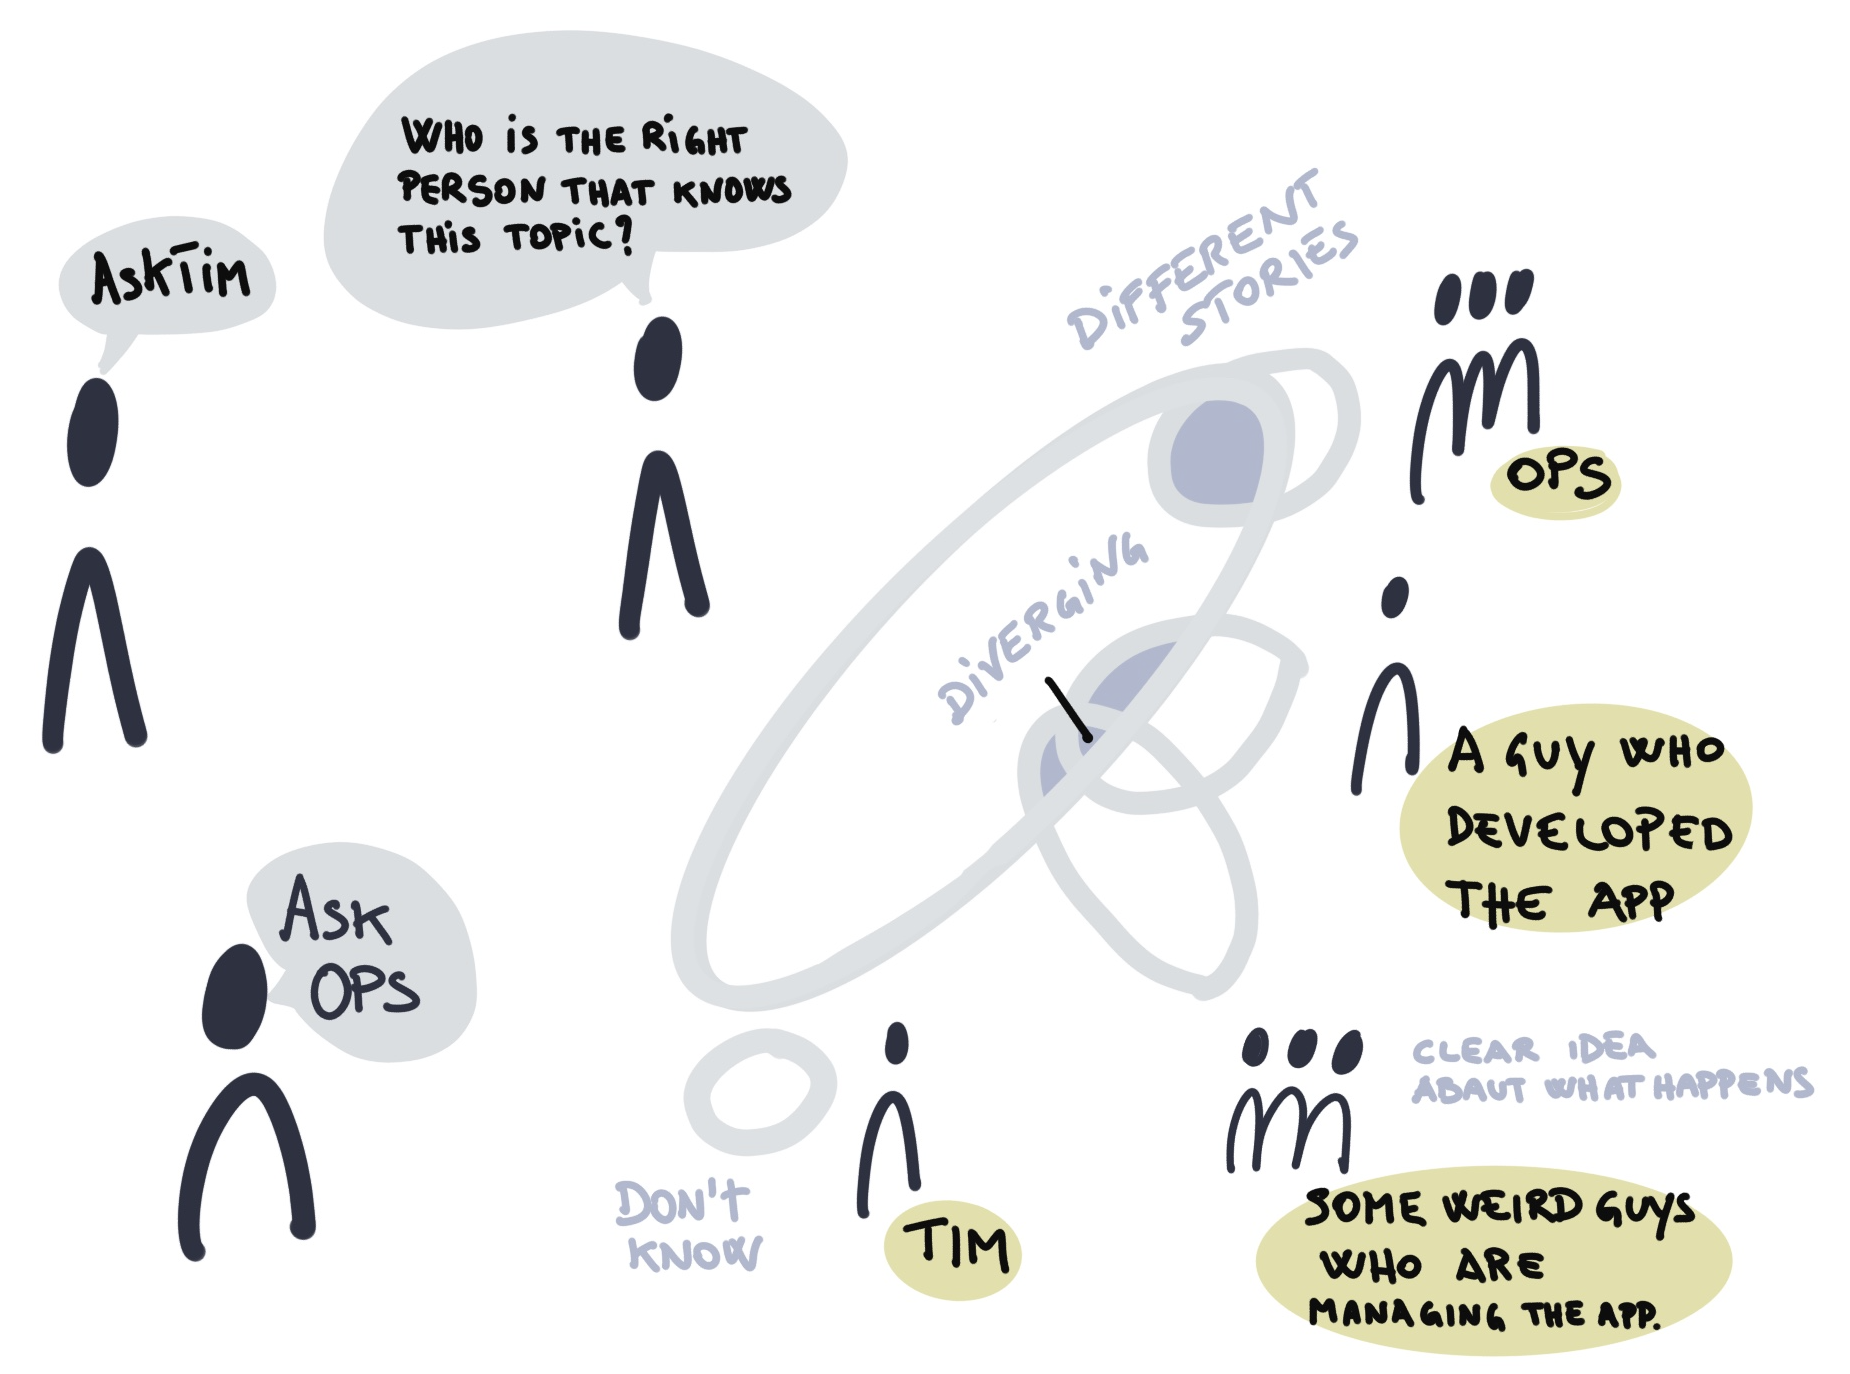 WHO iS THE RiGHT
PERSON THAT KNOWS
THiS TOPiC?
ASK TiM
DiFFERENT
STORiES
OPS
DiVERGiNG
A GUY WHO
DEVELOPED
THE APP
ASK
OPS
CLEAR IDEA
ABAUT WHAT HAPPENS
DON'T
KNOW
TIM
SOME WEIRD GUYS
WHO ARE
MANAGING THE APP.